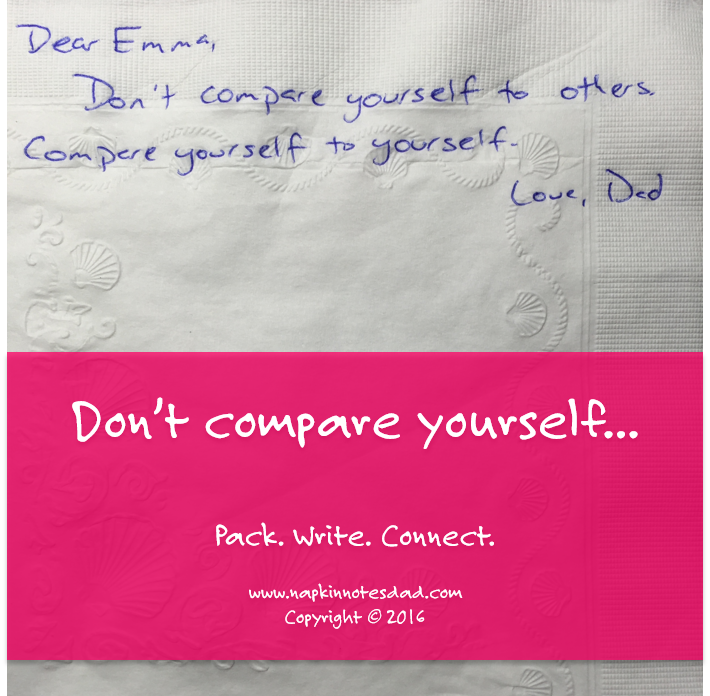 Dear Emma,
Don't compare yourself to others.
Compare yourself to yourself.
Love, Dad
Don't compare yourself...
Pack. Write. Connect.
www.napkinnotesdad.com
Copyright © 2016